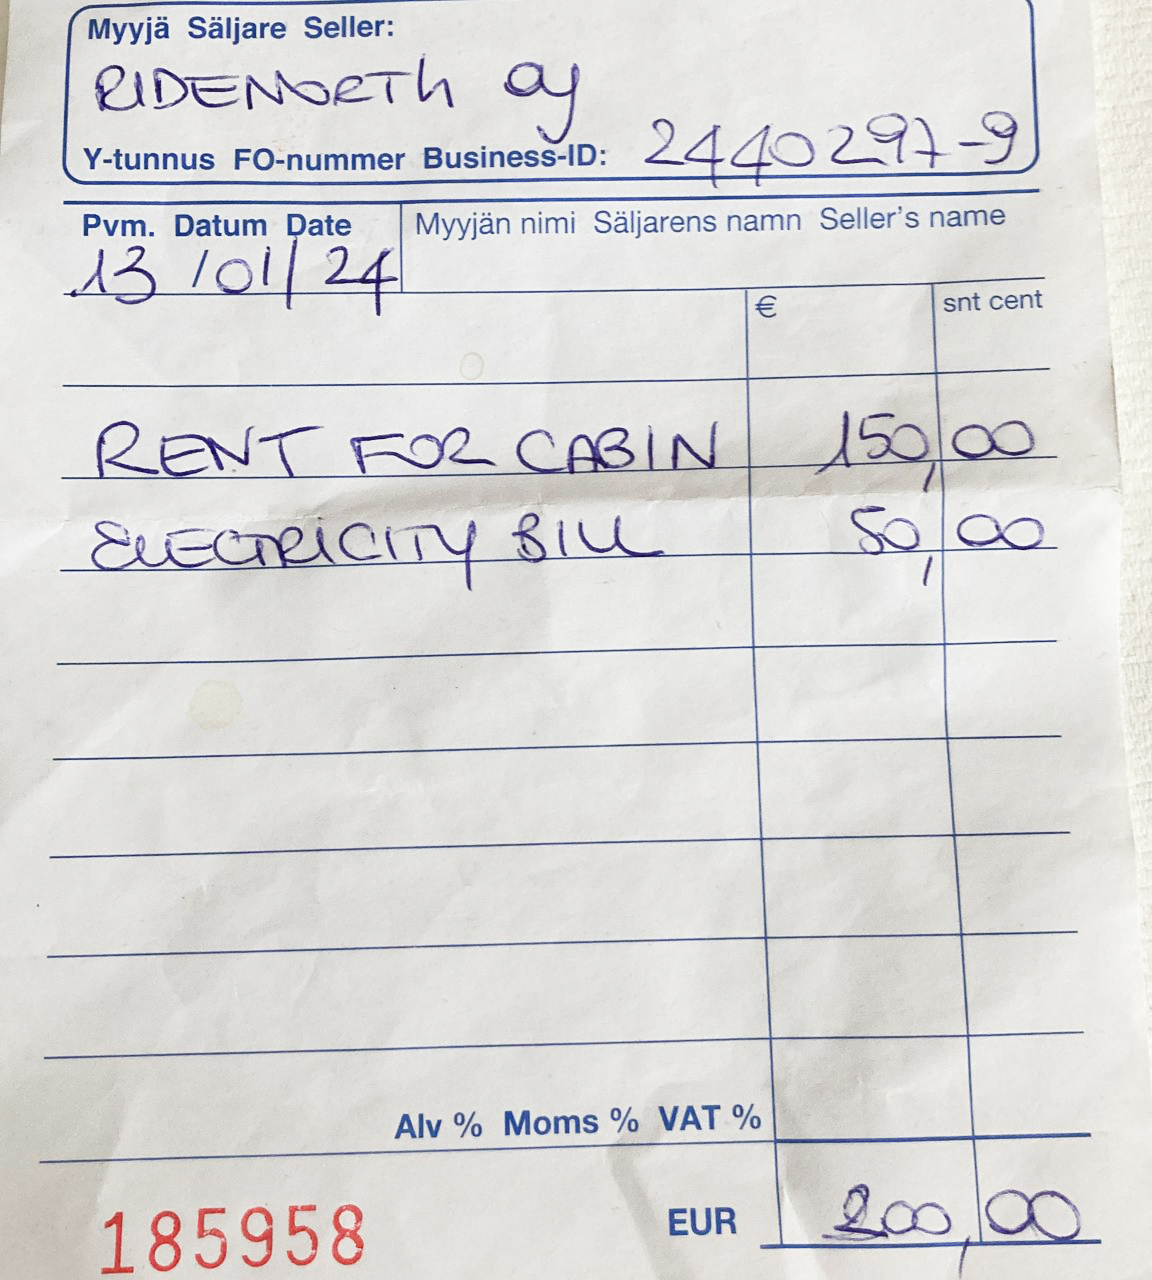 Myyjä Säljare Seller:
RIDENORTH Oy
Y-tunnus FO-nummer Business-ID: 2440297-9
Pvm. Datum Date Myyjän nimi Säljarens namn Seller's name
13/01/24
€ snt cent
RENT FOR CABIN 150,00
ELECTRICITY BILL 50,00
Alv % Moms % VAT %
185958 EUR 200,00